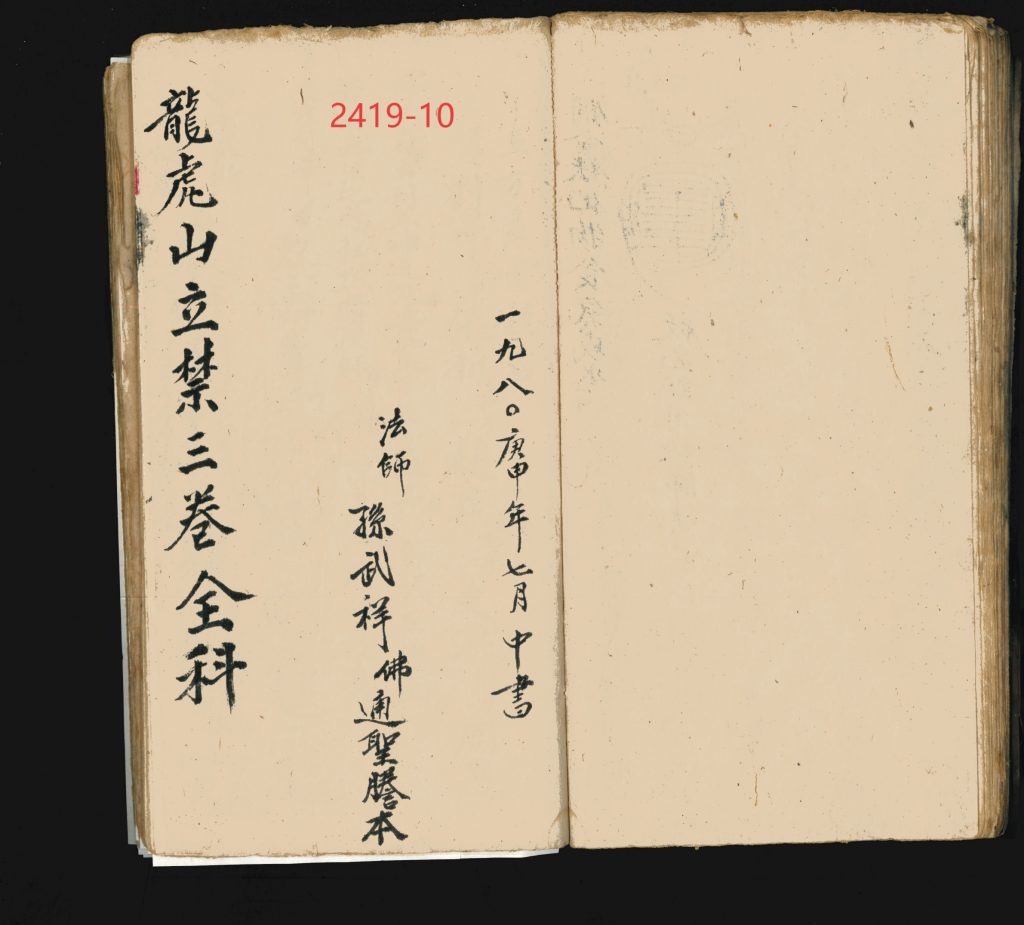 2419-10
一九八〇庚申年七月中書
法師 孫武祥佛通聖謄本
龍虎山立禁三卷全科